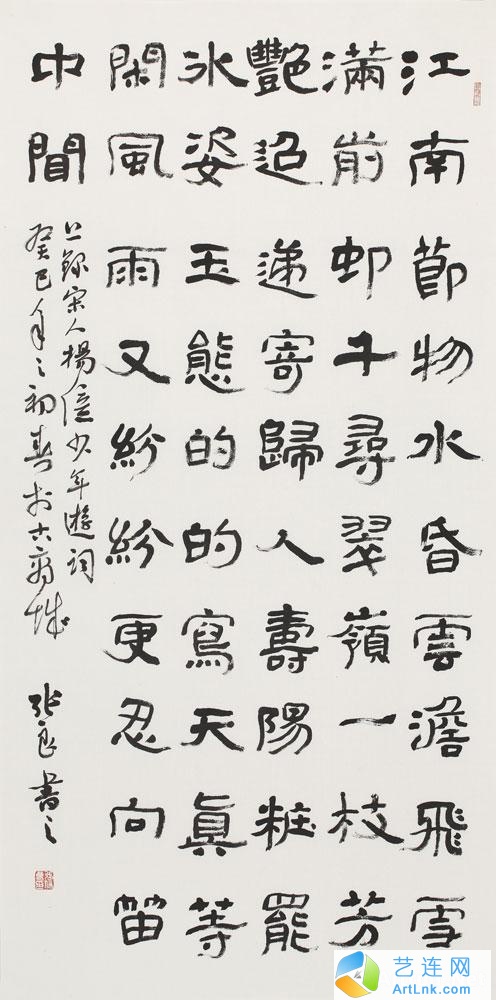 江南節物水昏雲澹飛雪
滿前邨千尋翠嶺一枝芳
艷迢遞寄歸人壽陽粧罷
冰姿玉態的的寫天真等
閑風雨又紛紛更忍向笛
中聞
上錄宋人楊億少年遊詞
癸巳年之初春於古商城
張良書之
艺连网
ArtLnk.com